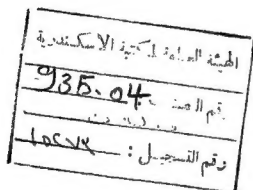 الهيئة العامة لمكتبة الاسكندرية
رقم الصنف 935.04
رقم التسجيل : ١٥٢٧٣